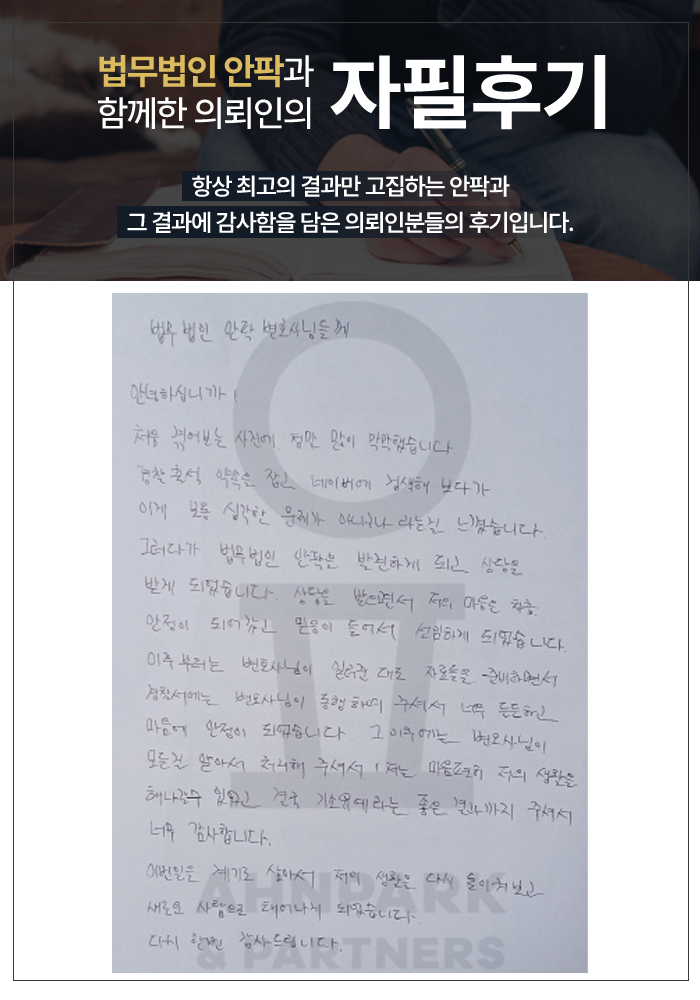 법무법인 안팍과
함께한 의뢰인의
자필후기
항상 최고의 결과만 고집하는 안팍과
그 결과에 감사함을 담은 의뢰인분들의 후기입니다.
법무법인 안팍 변호사님들께
안녕하십니까!
처음 겪어보는 사건에 정말 많이 막막했습니다
경찰 출석 약속을 잡고 네이버에 검색해 보다가
이게 보통 심각한 문제가 아니구나 라는걸 느꼈습니다.
그러다가 법무법인 안팍을 발견하게 되고 상담을
받게 되었습니다. 상담을 받으면서 저의 마음은 차츰
안정이 되어갔고 믿음이 들어서 선임하게 되었습니다.
이후부터는 변호사님이 일러준 대로 자료들을 준비하면서
경찰서에는 변호사님이 동행하여 주셔서 너무 든든하고
마음에 안정이 되었습니다. 그 이후에는 변호사님이
모든걸 알아서 처리해 주셔서 저는 마음편히 저의 생활을
해나갈수 있었고 결국 기소유예라는 좋은 결과까지 주셔서
너무 감사합니다.
이번일을 계기로 삼아서 저의 생활을 다시 돌이켜보고
새로운 사람으로 태어나게 되었습니다.
다시 한번 감사드립니다.
AHNPARK
& PARTNERS